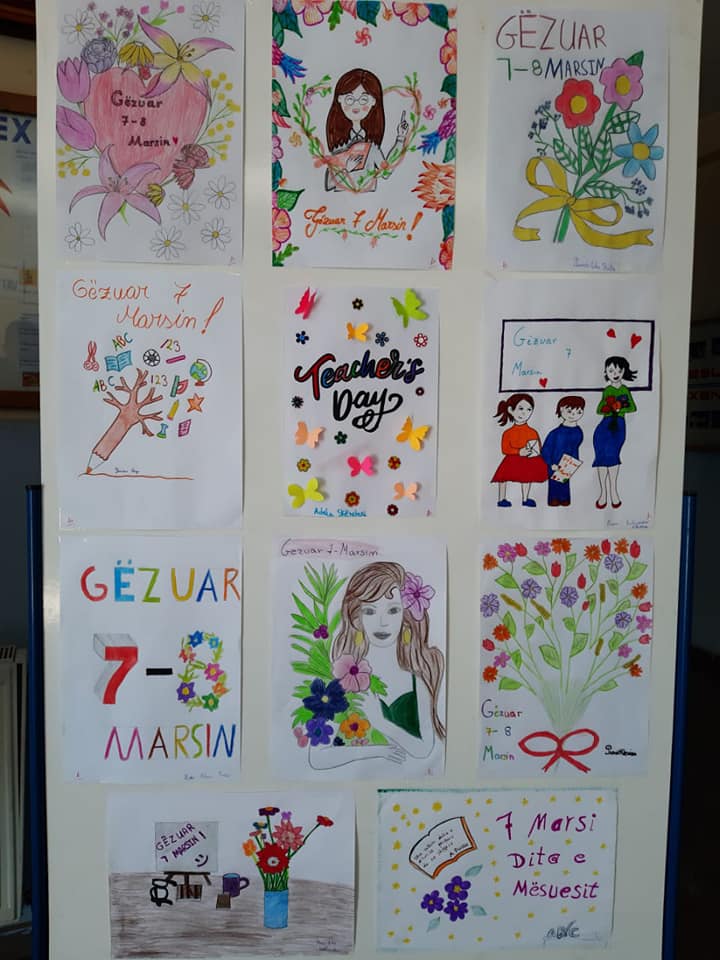 Gëzuar
7-8
Marsin
Gëzuar 7 Marsin!
GËZUAR
7-8 MARSIN
Gëzuar 7
Marsin!
ABC
123
ABC
123
Teacher's
Day
Gëzuar
7
Marsin
GËZUAR
7-8
MARSIN
Gëzuar 7-Marsin
Gëzuar
7-8
Marsin
GËZUAR
7 MARSIN!
7 Marsi
Dita e
Mësuesit
ABC
EX